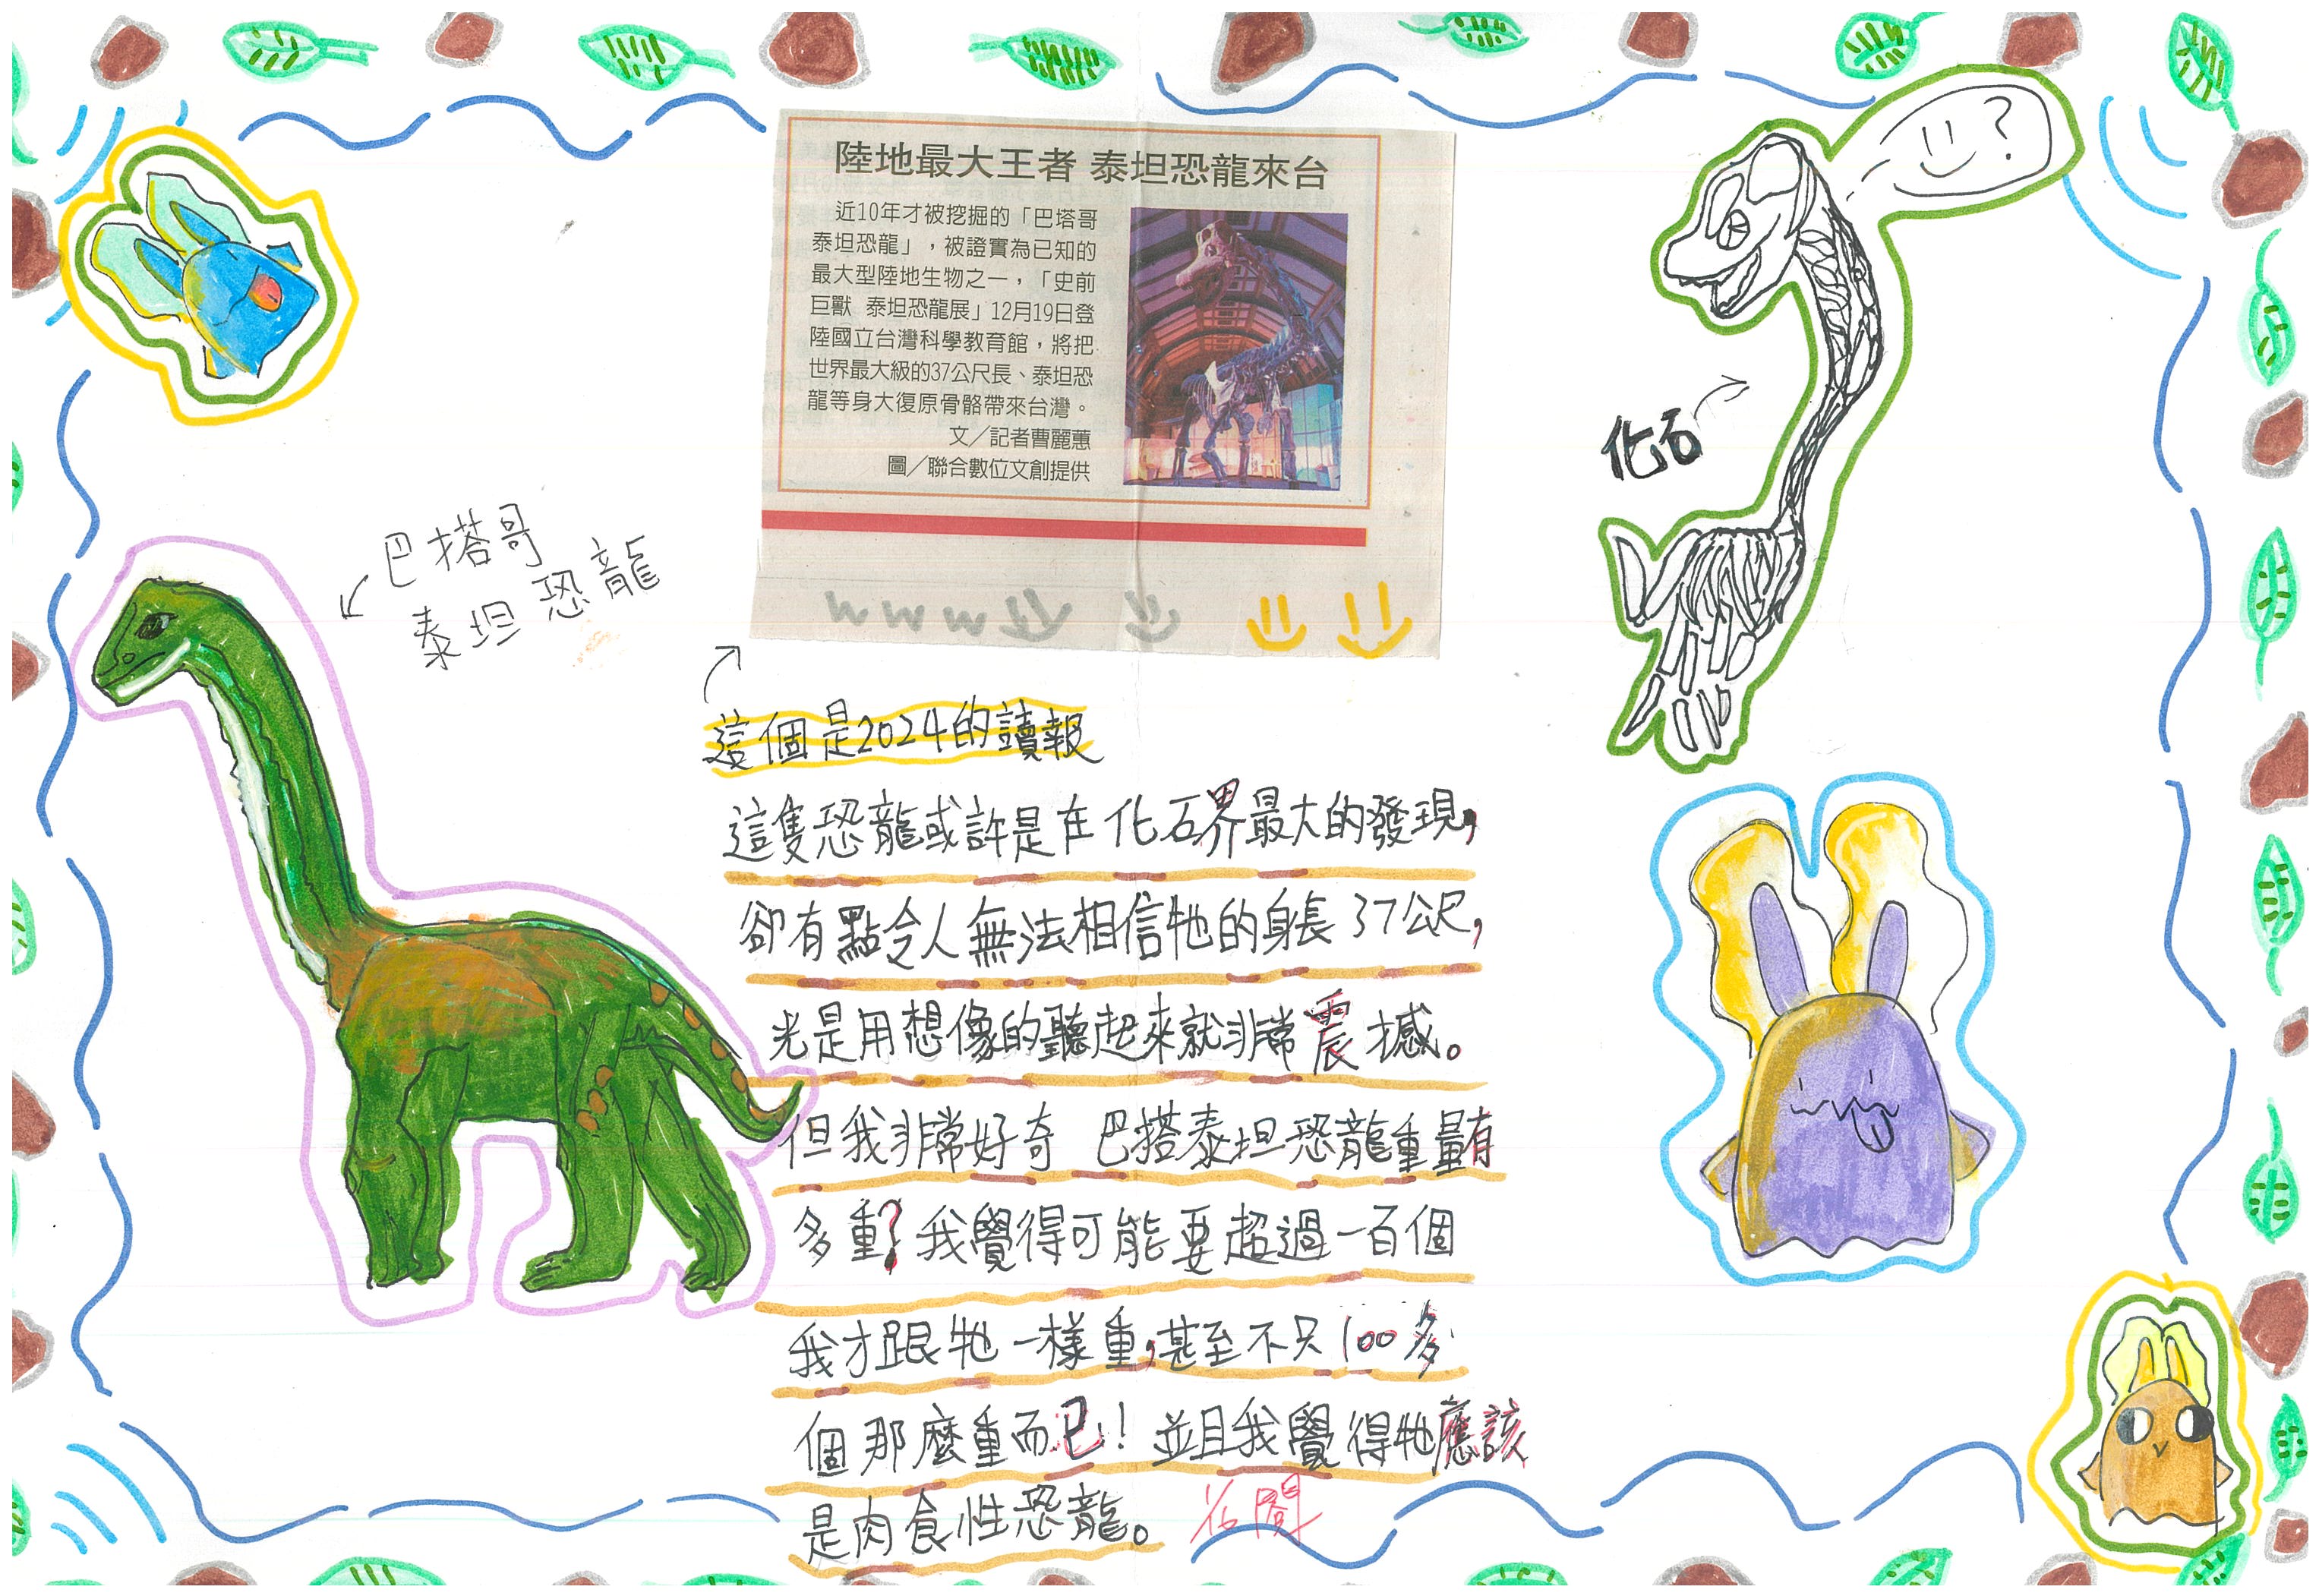 陸地最大王者 泰坦恐龍來台
近10年才被挖掘的「巴塔哥
泰坦恐龍」，被證實為已知的
最大型陸地生物之一，「史前
巨獸 泰坦恐龍展」12月19日登
陸國立台灣科學教育館，將把
世界最大級的37公尺長、泰坦恐
龍等身大復原骨骼帶來台灣。
文／記者曹麗蕙
圖／聯合數位文創提供
www
?
化石
巴搭哥
泰坦恐龍
這個是2024的讀報
這隻恐龍或許是在化石界最大的發現，
卻有點令人無法相信牠的身長37公尺，
光是用想像的聽起來就非常震撼。
但我非常好奇 巴搭泰坦恐龍重量有
多重？我覺得可能要超過一百個
我才跟牠一樣重，甚至不只100多
個那麼重而已！並且我覺得牠應該
是肉食性恐龍。